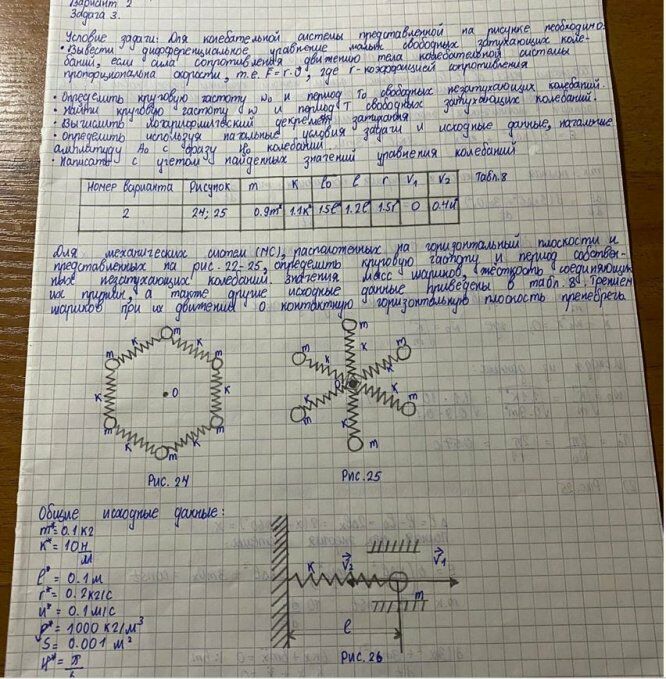 Вариант 2
Задача 3.
Условие задачи: Для колебательной системы представленной на рисунке, необходимо:
• Вывести дифференциальное уравнение малых свободных затухающих коле-
баний, если сила сопротивления движению тела колебательной системы
пропорциональна скорости, т.е. F = r·υ, где r - коэффициент сопротивления
• Определить круговую частоту ω₀ и период T₀ свободных незатухающих колебаний.
• Найти круговую частоту ω и период T свободных затухающих колебаний.
• Вычислить логарифмический декремент затухания
• определить используя начальные условия задачи и исходные данные, начальные
амплитуду A₀ с фазу φ₀ колебаний.
• Написать с учетом найденных значений уравнения колебаний
Табл.8
Номер варианта Рисунок m k l₀ l r V₁ V₂
2 24; 25 0.9m* 1.1k* 1.5l* 1.2l* 1.5r* 0 0.4u*
Для механических систем (МС), расположенных на горизонтальный плоскости и
представленных на рис. 22-25, определить круговую частоту и период собствен-
ных незатухающих колебаний. Значения масс шариков, жёсткость соединяющих
их пружин, а также другие исходные данные приведены в табл. 8. Трением
шариков при их движении о контактную горизонтальную плоскость пренебречь
m
k k
m m
k O k
m m
k k
m
Рис. 24
m
m k m
k k
O
k k
m k m
m
Рис. 25
Общие исходные данные:
m* = 0.1 кг
k* = 10 Н/м
l* = 0.1 м
r* = 0.2 кг/с
u* = 0.1 м/с
ρ* = 1000 кг/м³
S = 0.001 м²
k V₂ V₁
m
l
Рис. 26